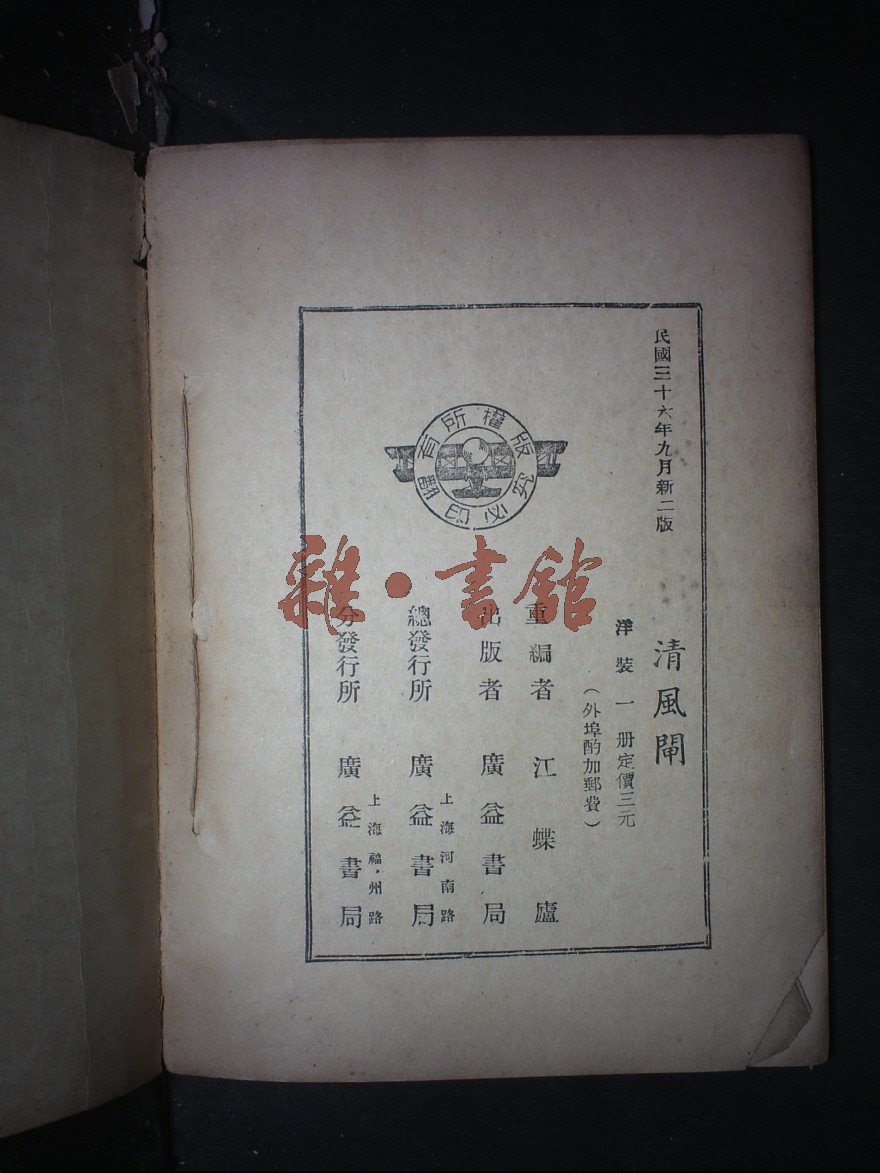 民國三十六年九月新二版
清風閘
洋裝一册定價三元
（外埠酌加郵費）
重編者 江蝶廬
出版者 廣益書局
上海河南路
總發行所 廣益書局
上海福州路
分發行所 廣益書局
版權所有
翻印必究
雜·書館